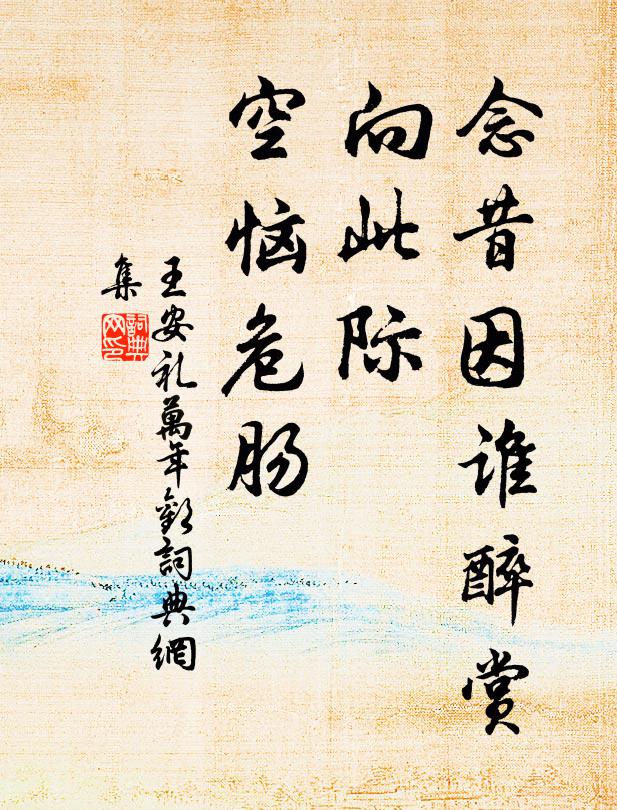 念昔因谁醉赏
向此际
空恼危肠
王安礼萬年歡詞典網
集
詞典
网印